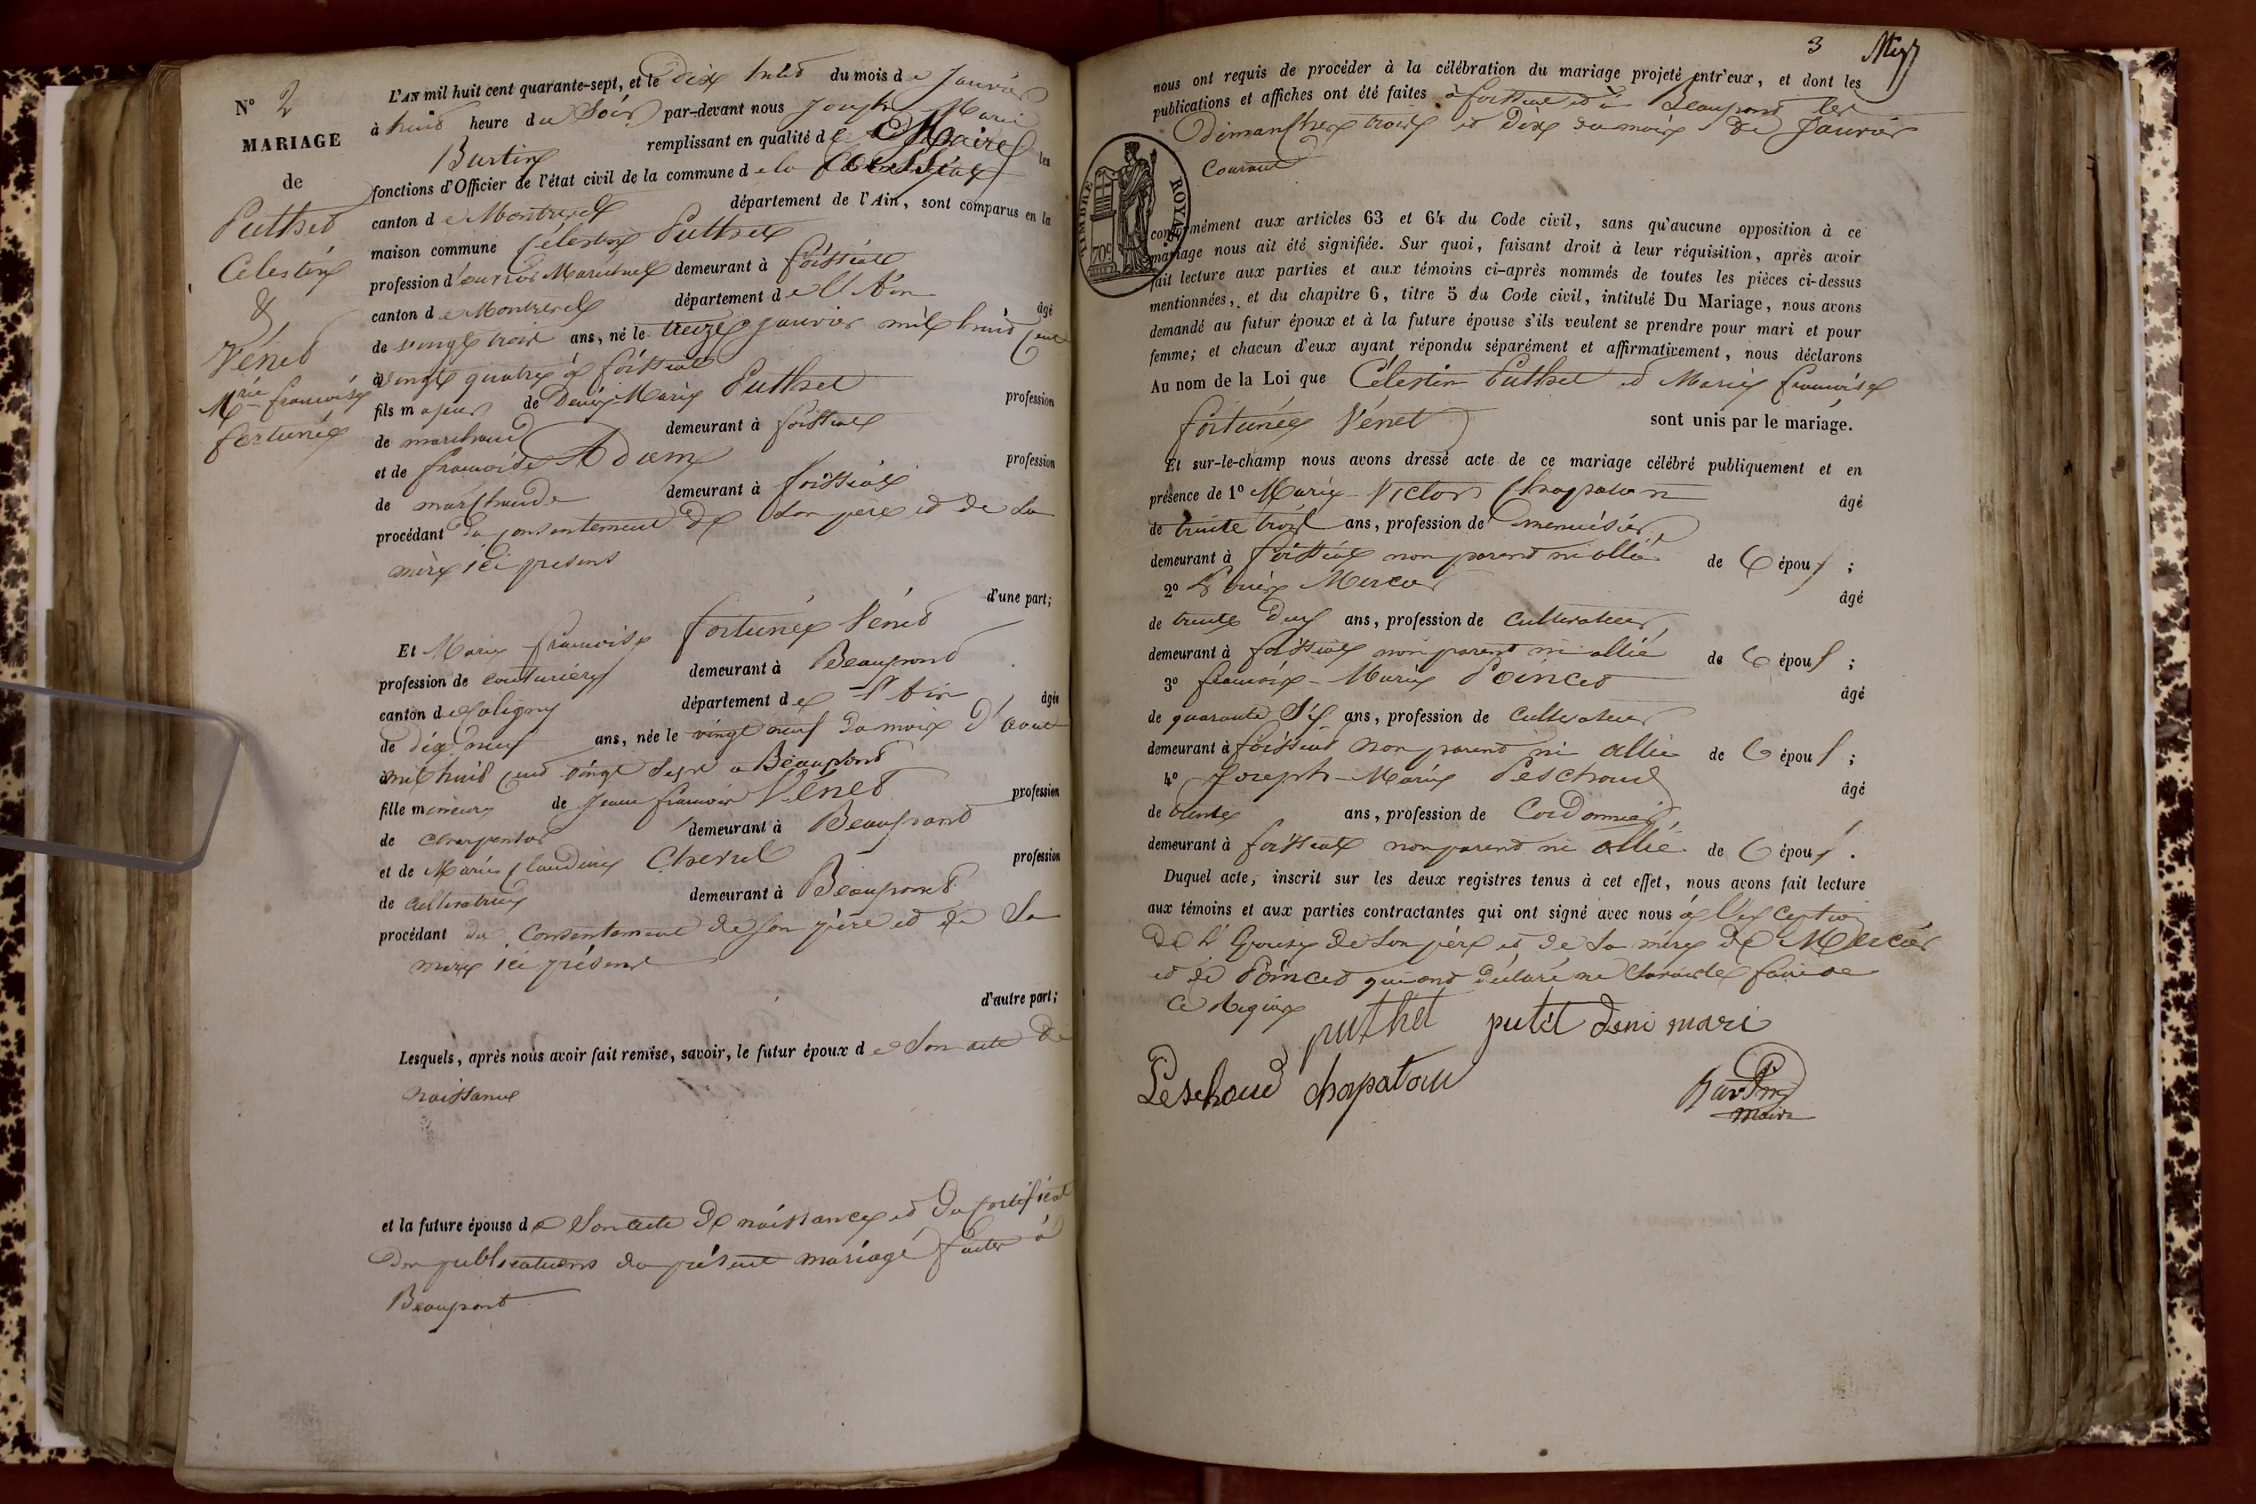 N° 2
MARIAGE
de
Puthet
Célestin
&
Vénet
Mrie françoise
fortunée
L'AN mil huit cent quarante-sept, et le dix huit du mois de Janvier
à huit heure du Soir par-devant nous Joseph Marie
Burtin remplissant en qualité de Maire les
fonctions d'Officier de l'état civil de la commune d
canton de Montrevel département de l'Ain, sont comparus en la
maison commune Célestin Puthet
profession d'ouvrier Maréchal demeurant à foissiat
canton de Montrevel département de l'Ain âgé
de vingt trois ans, né le treize janvier mil huit cent
vingt quatre à foissiat
fils majeur de Denis-Marie Puthet profession
de marchand demeurant à foissiat
et de françoise Adam profession
de marchande demeurant à foissiat
procédant du consentement de son père et de sa
mère ici présens
d'une part;
Et Marie françoise fortunée Vénet
profession de couturière demeurant à Beaupont
canton de Coligny département de l'Ain âgée
de dix neuf ans, née le vingt neuf du mois d'aout
mil huit cent vingt sept à Beaupont
fille mineure de Jean françois Vénet profession
de charpentier demeurant à Beaupont
et de Marie claudine Chevrel profession
de cultivatrice demeurant à Beaupont
procédant du consentement de son père et de sa
mère ici présens
d'autre part;
Lesquels, après nous avoir fait remise, savoir, le futur époux de Son acte de
naissance
et la future épouse de Son acte de naissance et du certificat
des publications du présent mariage faites à
Beaupont
3
nous ont requis de procéder à la célébration du mariage projeté entr'eux, et dont les
publications et affiches ont été faites à foissiat et à Beaupont les
dimanches trois et dix du mois de Janvier
Courant
TIMBRE ROYAL
70c
conformément aux articles 63 et 64 du Code civil, sans qu'aucune opposition à ce
mariage nous ait été signifiée. Sur quoi, faisant droit à leur réquisition, après avoir
fait lecture aux parties et aux témoins ci-après nommés de toutes les pièces ci-dessus
mentionnées, et du chapitre 6, titre 5 du Code civil, intitulé Du Mariage, nous avons
demandé au futur époux et à la future épouse s'ils veulent se prendre pour mari et pour
femme; et chacun d'eux ayant répondu séparément et affirmativement, nous déclarons
Au nom de la Loi que Célestin Puthet et Marie françoise
fortunée Vénet sont unis par le mariage.
Et sur-le-champ nous avons dressé acte de ce mariage célébré publiquement et en
présence de 1° Marie-Victor Chapatou âgé
de trente trois ans, profession de menuisier
demeurant à foissiat non parent ni allié de l'époux;
2° Mercier âgé
de trente deux ans, profession de Cultivateur
demeurant à foissiat non parent ni allié de l'époux;
3° françois-Marie Poincet âgé
de quarante six ans, profession de Cultivateur
demeurant à foissiat non parent ni allié de l'époux;
4° Joseph-Marie Peschoud âgé
de trente ans, profession de Cordonnier
demeurant à foissiat non parent ni allié de l'époux.
Duquel acte, inscrit sur les deux registres tenus à cet effet, nous avons fait lecture
aux témoins et aux parties contractantes qui ont signé avec nous à l'exception
de l'épouse de Son père et de Sa mère de Mercier
et de Poincet qui ont déclaré ne Savoir le faire de
Ce Requis
puthet putet deni mari
Peschoud chapatou Burtin
maire